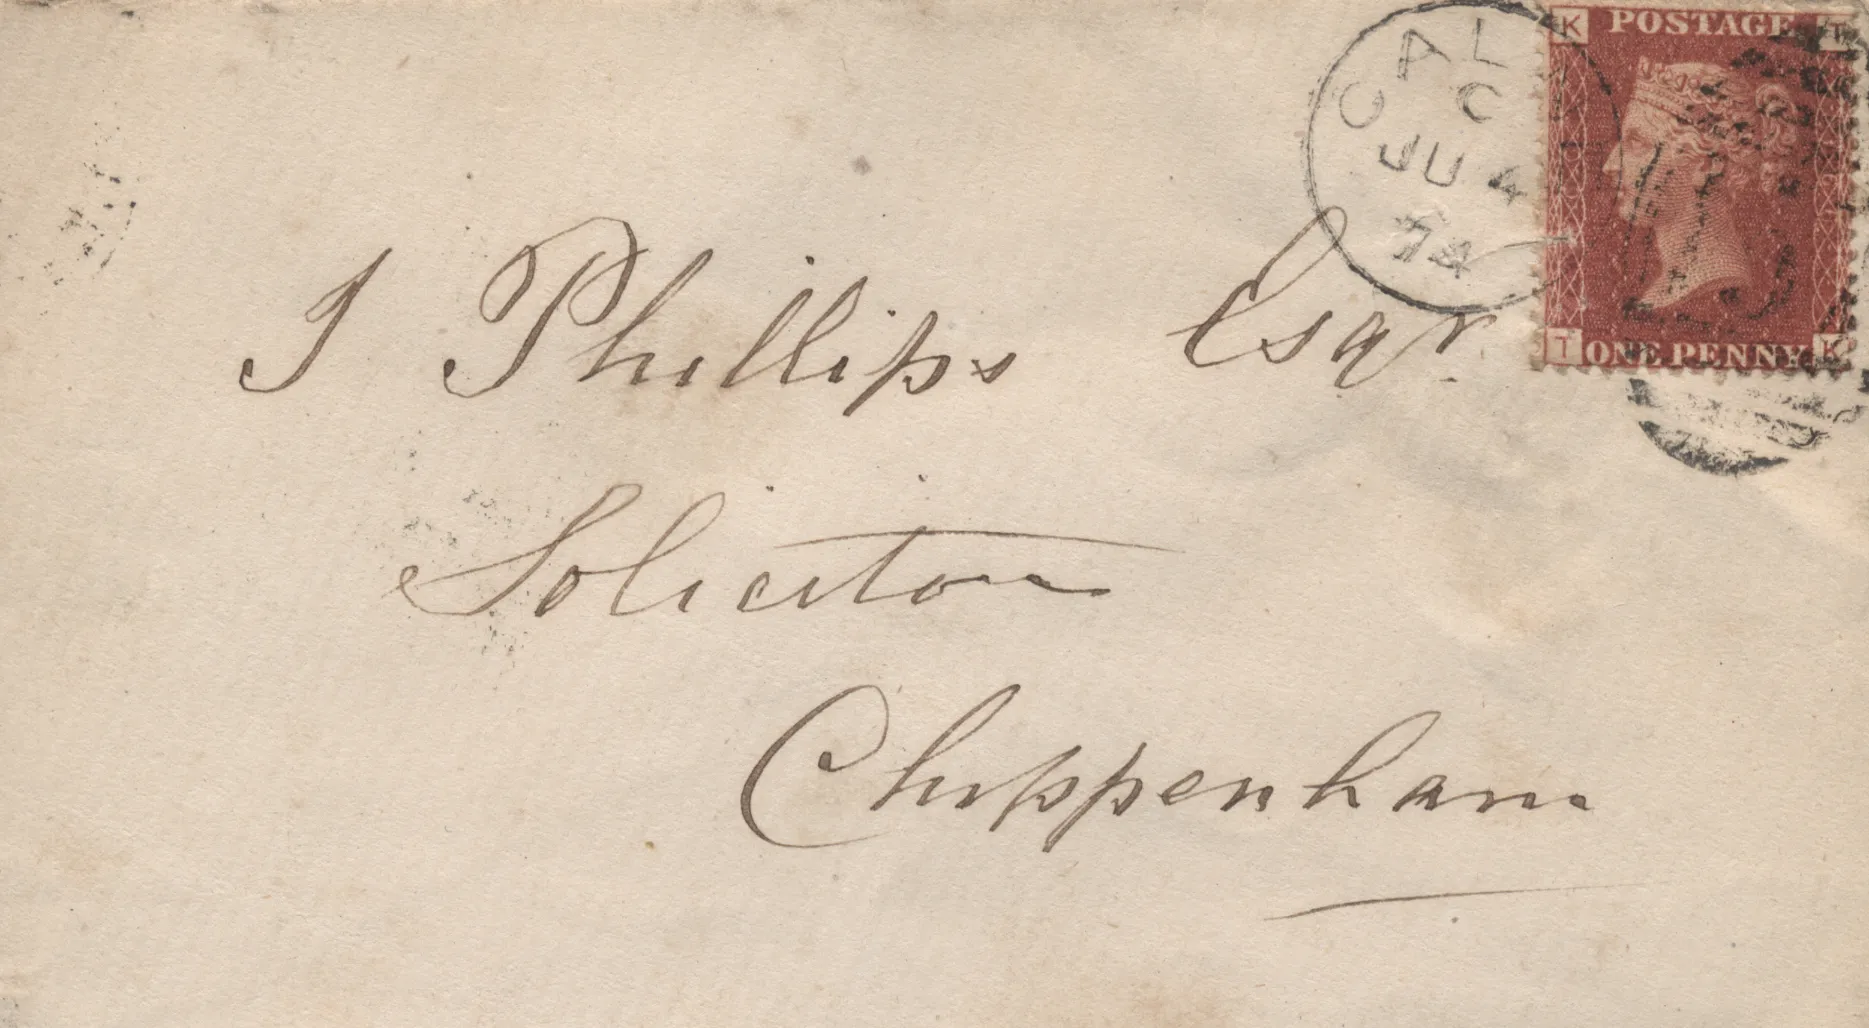 K POSTAGE T
CAL
C
JU 4
74
T ONE PENNY K
J Phillips Esqr.
Solicitor
Chippenham